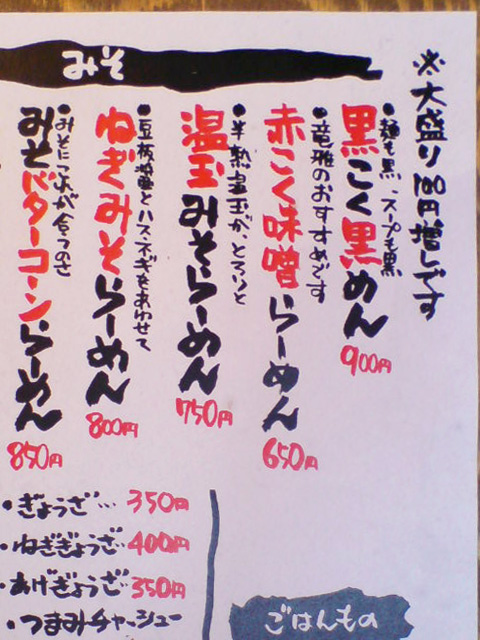 みそ
※大盛り100円増しです
●麺も黒、スープも黒
黒こく黒めん
900円
●竜雅のおすすめです
赤こく味噌らーめん
650円
●半熟温玉が、とろりと
温玉みそらーめん
750円
●豆板醤とハスネギをあわせて
ねぎみそらーめん
800円
●みそにこれが合うのさ
みそバターコーンらーめん
850円
・ぎょうざ…350円
・ねぎぎょうざ…400円
・あげぎょうざ…350円
・つまみチャーシュー
ごはんもの